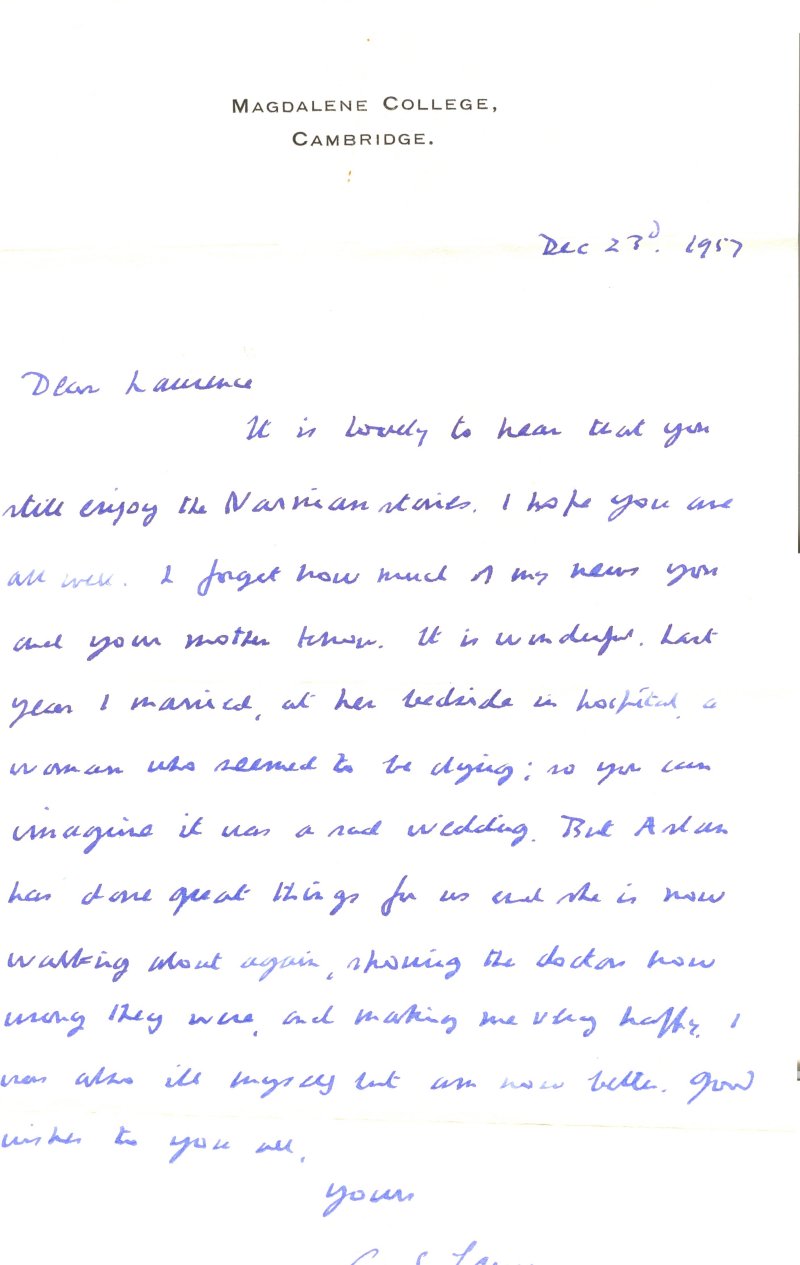 MAGDALENE COLLEGE,
CAMBRIDGE.
Dec 23d. 1957
Dear Laurence
It is lovely to hear that you
still enjoy the Narnian stories. I hope you are
all well. I forget how much of my news you
and your mother know. It is wonderful. Last
year I married, at her bedside in hospital, a
woman who seemed to be dying; so you can
imagine it was a sad wedding. But Aslan
has done great things for us and she is now
walking about again, showing the doctors how
wrong they were, and making me very happy. I
was also ill myself but am now better. Good
wishes to you all,
yours
C S